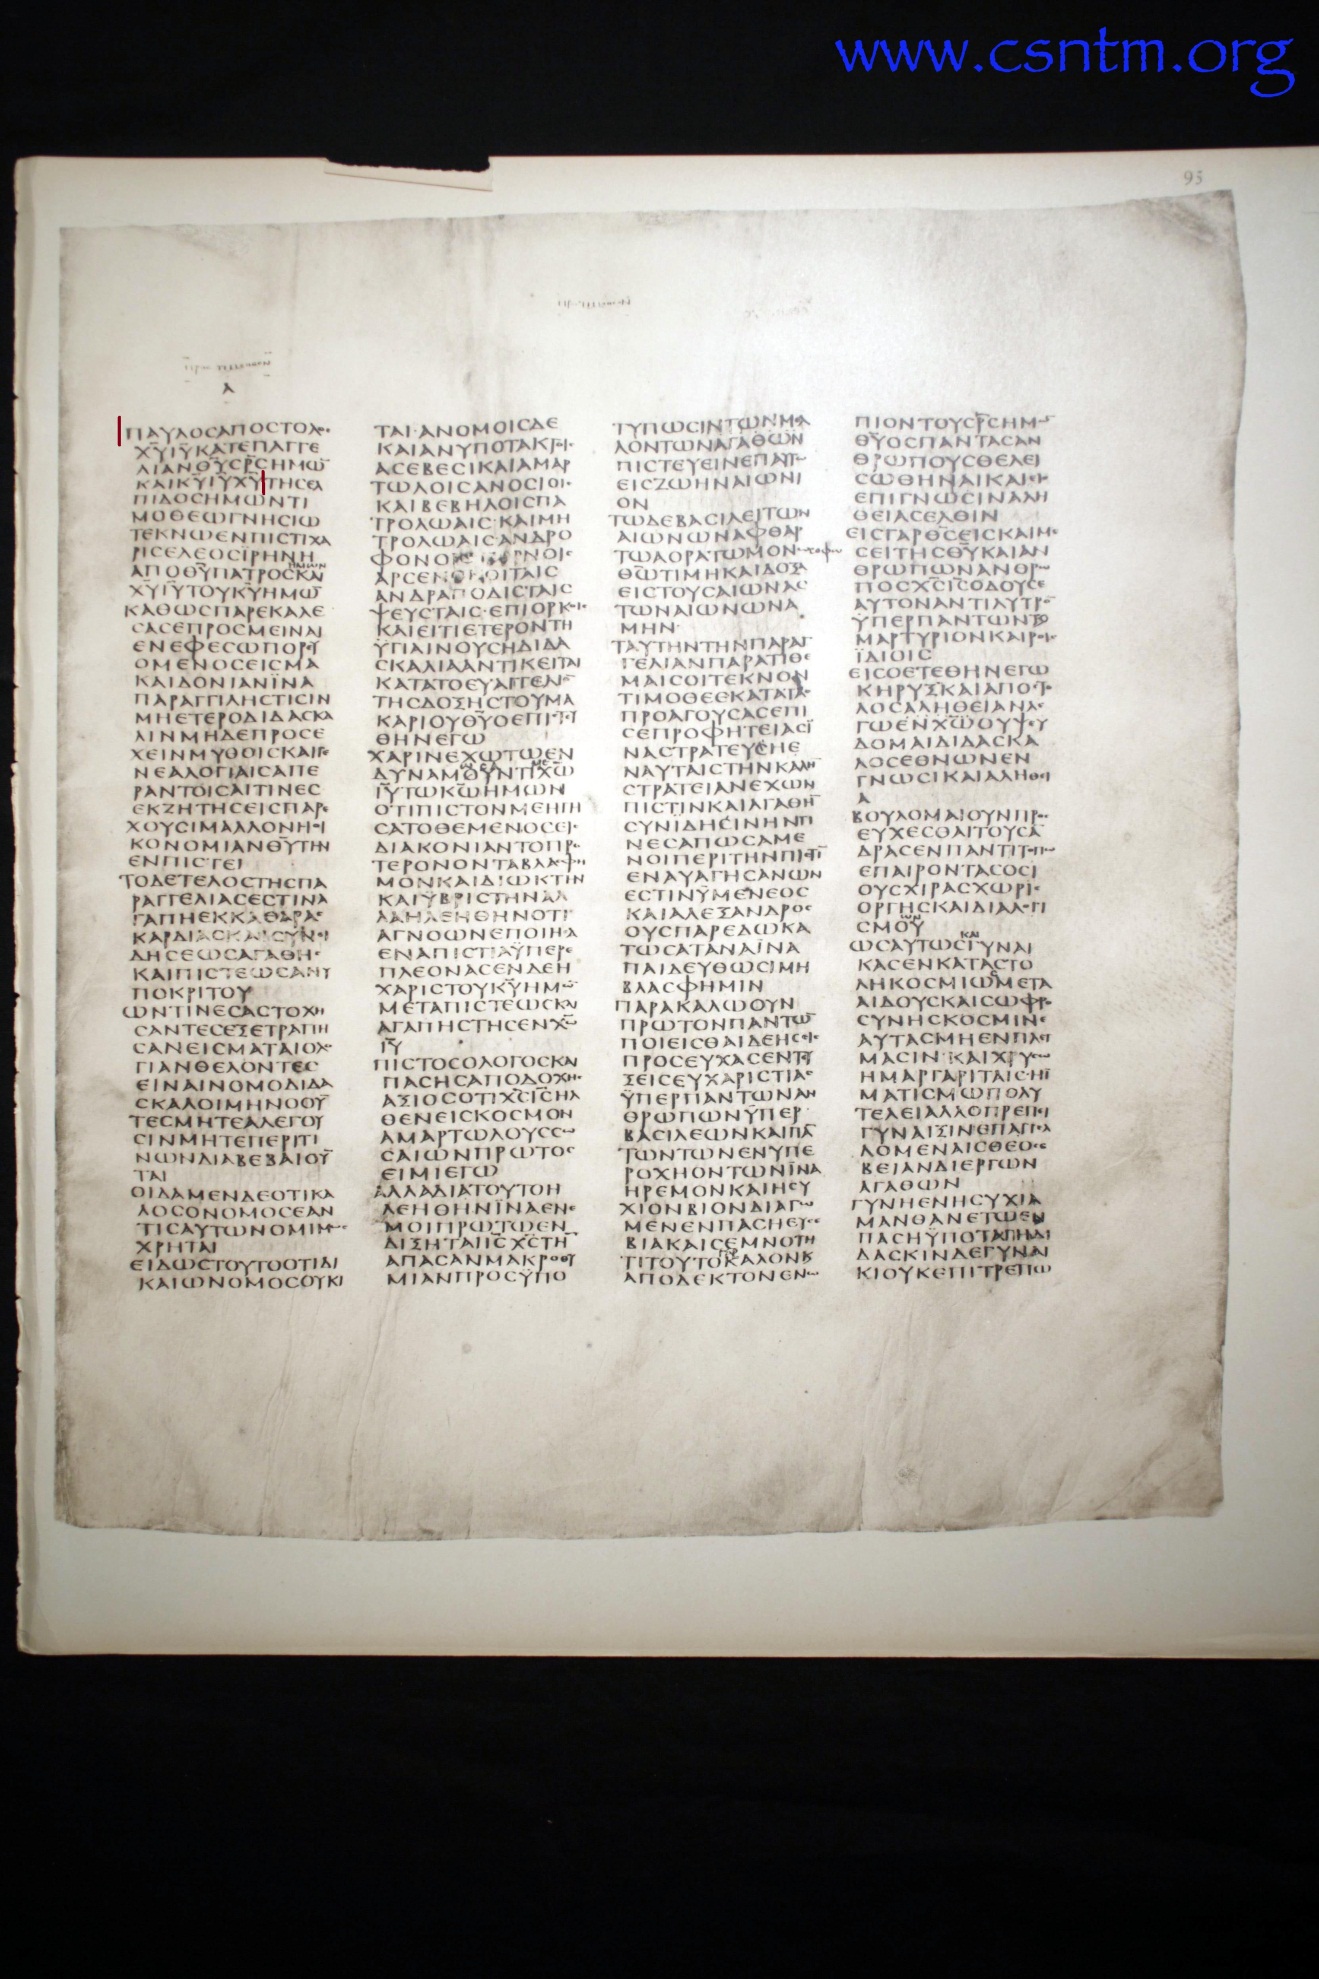 www.csntm.org
95
Α
ΠΑΥΛΟΣΑΠΟΣΤΟΛΟΣ
ΧΥΙΥΚΑΤΕΠΑΓΓΕ
ΛΙΑΝΘΥΣΡΣΗΜΩ
ΚΑΙΚΥΙΥΧΥΤΗΣΕΛ
ΠΙΔΟΣΗΜΩΝΤΙ
ΜΟΘΕΩΓΝΗΣΙΩ
ΤΕΚΝΩΕΝΠΙΣΤΙΧΑ
ΡΙΣΕΛΕΟΣΪΡΗΝΗ
ΑΠΟΘΥΠΑΤΡΟΣΚΑΙ
ΧΥΙΥΤΟΥΚΥΗΜΩ
ΚΑΘΩΣΠΑΡΕΚΑΛΕ
ΣΑΣΕΠΡΟΣΜΕΙΝΑΙ
ΕΝΕΦΕΣΩΠΟΡΕΥ
ΟΜΕΝΟΣΕΙΣΜΑ
ΚΑΙΔΟΝΙΑΝΪΝΑ
ΠΑΡΑΓΓΙΛΗΣΤΙΣΙΝ
ΜΗΕΤΕΡΟΔΙΔΑΣΚΑ
ΛΙΝΜΗΔΕΠΡΟΣΕ
ΧΕΙΝΜΥΘΟΙΣΚΑΙΓΕ
ΝΕΑΛΟΓΙΑΙΣΑΠΕ
ΡΑΝΤΟΙΣΑΙΤΙΝΕΣ
ΕΚΖΗΤΗΣΕΙΣΠΑΡΕ
ΧΟΥΣΙΜΑΛΛΟΝΗΟΙ
ΚΟΝΟΜΙΑΝΘΥΤΗΝ
ΕΝΠΙΣΤΕΙ
ΤΟΔΕΤΕΛΟΣΤΗΣΠΑ
ΡΑΓΓΕΛΙΑΣΕΣΤΙΝΑ
ΓΑΠΗΕΚΚΑΘΑΡΑΣ
ΚΑΡΔΙΑΣΚΑΙΣΥΝΙ
ΔΗΣΕΩΣΑΓΑΘΗΣ
ΚΑΙΠΙΣΤΕΩΣΑΝΥ
ΠΟΚΡΙΤΟΥ
ΩΝΤΙΝΕΣΑΣΤΟΧΗ
ΣΑΝΤΕΣΕΞΕΤΡΑΠΗ
ΣΑΝΕΙΣΜΑΤΑΙΟΛΟ
ΓΙΑΝΘΕΛΟΝΤΕΣ
ΕΙΝΑΙΝΟΜΟΔΙΔΑ
ΣΚΑΛΟΙΜΗΝΟΟΥ
ΤΕΣΜΗΤΕΑΛΕΓΟΥ
ΣΙΝΜΗΤΕΠΕΡΙΤΙ
ΝΩΝΔΙΑΒΕΒΑΙΟΥ
ΤΑΙ
ΟΙΔΑΜΕΝΔΕΟΤΙΚΑ
ΛΟΣΟΝΟΜΟΣΕΑΝ
ΤΙΣΑΥΤΩΝΟΜΙΜΩΣ
ΧΡΗΤΑΙ
ΕΙΔΩΣΤΟΥΤΟΟΤΙΔΙ
ΚΑΙΩΝΟΜΟΣΟΥΚΙ
ΤΑΙ·ΑΝΟΜΟΙΣΔΕ
ΚΑΙΑΝΥΠΟΤΑΚΤΟΙΣ
ΑΣΕΒΕΣΙΚΑΙΑΜΑΡ
ΤΩΛΟΙΣΑΝΟΣΙΟΙΣ
ΚΑΙΒΕΒΗΛΟΙΣΠΑ
ΤΡΟΛΩΑΙΣ·ΚΑΙΜΗ
ΤΡΟΛΩΑΙΣΑΝΔΡΟ
ΦΟΝΟΙΣΠΟΡΝΟΙΣ
ΑΡΣΕΝΟΚΟΙΤΑΙΣ
ΑΝΔΡΑΠΟΔΙΣΤΑΙΣ
ΨΕΥΣΤΑΙΣ·ΕΠΙΟΡΚΟΙΣ
ΚΑΙΕΙΤΙΕΤΕΡΟΝΤΗ
ΫΓΙΑΙΝΟΥΣΗΔΙΔΑ
ΣΚΑΛΙΑΑΝΤΙΚΕΙΤΑΙ
ΚΑΤΑΤΟΕΥΑΓΓΕΛΙΟΝ
ΤΗΣΔΟΞΗΣΤΟΥΜΑ
ΚΑΡΙΟΥΘΥΟΕΠΙΣΤΕΥ
ΘΗΝΕΓΩ
ΧΑΡΙΝΕΧΩΤΩΕΝ
ΔΥΝΑΜΟΥΝΤΙΧΩ
ΙΥΤΩΚΩΗΜΩΝ
ΟΤΙΠΙΣΤΟΝΜΕΗΓΗ
ΣΑΤΟΘΕΜΕΝΟΣΕΙΣ
ΔΙΑΚΟΝΙΑΝΤΟΠΡΟ
ΤΕΡΟΝΟΝΤΑΒΛΑΣΦΗ
ΜΟΝΚΑΙΔΙΩΚΤΗΝ
ΚΑΙΫΒΡΙΣΤΗΝΑΛ
ΛΑΗΛΕΗΘΗΝΟΤΙ
ΑΓΝΟΩΝΕΠΟΙΗΣΑ
ΕΝΑΠΙΣΤΙΑΫΠΕΡΕ
ΠΛΕΟΝΑΣΕΝΔΕΗ
ΧΑΡΙΣΤΟΥΚΥΗΜΩ
ΜΕΤΑΠΙΣΤΕΩΣΚΑΙ
ΑΓΑΠΗΣΤΗΣΕΝΧΩ
ΙΥ
ΠΙΣΤΟΣΟΛΟΓΟΣΚΑΙ
ΠΑΣΗΣΑΠΟΔΟΧΗΣ
ΑΞΙΟΣΟΤΙΧΣΙΣΗΛ
ΘΕΝΕΙΣΚΟΣΜΟΝ
ΑΜΑΡΤΩΛΟΥΣΣΩ
ΣΑΙΩΝΠΡΩΤΟΣ
ΕΙΜΙΕΓΩ
ΑΛΛΑΔΙΑΤΟΥΤΟΗ
ΛΕΗΘΗΝΪΝΑΕΝΕ
ΜΟΙΠΡΩΤΩΕΝ
ΔΙΞΗΤΑΙΙΣΧΣΤΗ
ΑΠΑΣΑΝΜΑΚΡΟΘΥ
ΜΙΑΝΠΡΟΣΫΠΟ
ΤΥΠΩΣΙΝΤΩΝΜΕΛ
ΛΟΝΤΩΝΑΓΑΘΩΝ
ΠΙΣΤΕΥΕΙΝΕΠΑΥΤΩ
ΕΙΣΖΩΗΝΑΙΩΝΙ
ΟΝ
ΤΩΔΕΒΑΣΙΛΕΙΤΩΝ
ΑΙΩΝΩΝΑΦΘΑΡ
ΤΩΑΟΡΑΤΩΜΟΝΩΣΟΦΩ
ΘΩΤΙΜΗΚΑΙΔΟΞΑ
ΕΙΣΤΟΥΣΑΙΩΝΑΣ
ΤΩΝΑΙΩΝΩΝΑ
ΜΗΝ
ΤΑΥΤΗΝΤΗΝΠΑΡΑΓ
ΓΕΛΙΑΝΠΑΡΑΤΙΘΕ
ΜΑΙΣΟΙΤΕΚΝΟΝ
ΤΙΜΟΘΕΕΚΑΤΑΤΑΣ
ΠΡΟΑΓΟΥΣΑΣΕΠΙ
ΣΕΠΡΟΦΗΤΕΙΑΣΪ
ΝΑΣΤΡΑΤΕΥΣΗΕ
ΝΑΥΤΑΙΣΤΗΝΚΑΛΗΝ
ΣΤΡΑΤΕΙΑΝΕΧΩΝ
ΠΙΣΤΙΝΚΑΙΑΓΑΘΗ
ΣΥΝΙΔΗΣΙΝΗΝΤΙ
ΝΕΣΑΠΩΣΑΜΕ
ΝΟΙΠΕΡΙΤΗΝΠΙΣΤΙ
ΕΝΑΥΑΓΗΣΑΝΩΝ
ΕΣΤΙΝΫΜΕΝΕΟΣ
ΚΑΙΑΛΕΞΑΝΔΡΟΣ
ΟΥΣΠΑΡΕΔΩΚΑ
ΤΩΣΑΤΑΝΑΪΝΑ
ΠΑΙΔΕΥΘΩΣΙΜΗ
ΒΛΑΣΦΗΜΙΝ
ΠΑΡΑΚΑΛΩΟΥΝ
ΠΡΩΤΟΝΠΑΝΤΩ
ΠΟΙΕΙΣΘΑΙΔΕΗΣΕΙΣ
ΠΡΟΣΕΥΧΑΣΕΝΤΕΥ
ΞΕΙΣΕΥΧΑΡΙΣΤΙΑΣ
ΫΠΕΡΠΑΝΤΩΝΑΝ
ΘΡΩΠΩΝΫΠΕΡ
ΒΑΣΙΛΕΩΝΚΑΙΠΑ
ΤΩΝΤΩΝΕΝΥΠΕ
ΡΟΧΗΟΝΤΩΝΪΝΑ
ΗΡΕΜΟΝΚΑΙΗΣΥ
ΧΙΟΝΒΙΟΝΔΙΑΓΩ
ΜΕΝΕΝΠΑΣΗΕΥΣΕ
ΒΙΑΚΑΙΣΕΜΝΟΤΗ
ΤΙΤΟΥΤΟΚΑΛΟΝΚ
ΑΠΟΔΕΚΤΟΝΕΝΩ
ΠΙΟΝΤΟΥΣΡΣΗΜΩ
ΘΥΟΣΠΑΝΤΑΣΑΝ
ΘΡΩΠΟΥΣΘΕΛΕΙ
ΣΩΘΗΝΑΙΚΑΙΕΙΣ
ΕΠΙΓΝΩΣΙΝΑΛΗ
ΘΕΙΑΣΕΛΘΙΝ
ΕΙΣΓΑΡΘΣΕΙΣΚΑΙΜΕ
ΣΕΙΤΗΣΘΥΚΑΙΑΝ
ΘΡΩΠΩΝΑΝΘΡΩ
ΠΟΣΧΣΙΣΟΔΟΥΣΕ
ΑΥΤΟΝΑΝΤΙΛΥΤΡΟ
ΫΠΕΡΠΑΝΤΩΝΤΟ
ΜΑΡΤΥΡΙΟΝΚΑΙΡΟΙΣ
ΪΔΙΟΙΣ
ΕΙΣΟΕΤΕΘΗΝΕΓΩ
ΚΗΡΥΞΚΑΙΑΠΟΣΤΟ
ΛΟΣΑΛΗΘΕΙΑΝΛΕ
ΓΩΕΝΧΩΟΥΨΕΥ
ΔΟΜΑΙΔΙΔΑΣΚΑ
ΛΟΣΕΘΝΩΝΕΝ
ΓΝΩΣΙΚΑΙΑΛΗΘΕΙ
Α
ΒΟΥΛΟΜΑΙΟΥΝΠΡΟΣ
ΕΥΧΕΣΘΑΙΤΟΥΣΑ
ΔΡΑΣΕΝΠΑΝΤΙΤΟΠΩ
ΕΠΑΙΡΟΝΤΑΣΟΣΙ
ΟΥΣΧΙΡΑΣΧΩΡΙΣ
ΟΡΓΗΣΚΑΙΔΙΑΛΟΓΙ
ΣΜΟΥ
ΩΣΑΥΤΩΣΓΥΝΑΙ
ΚΑΣΕΝΚΑΤΑΣΤΟ
ΛΗΚΟΣΜΙΩΜΕΤΑ
ΑΙΔΟΥΣΚΑΙΣΩΦΡΟ
ΣΥΝΗΣΚΟΣΜΙΝΕ
ΑΥΤΑΣΜΗΕΝΠΛΕΓ
ΜΑΣΙΝΚΑΙΧΡΥΣΩ
ΗΜΑΡΓΑΡΙΤΑΙΣΗΪ
ΜΑΤΙΣΜΩΠΟΛΥ
ΤΕΛΕΙΑΛΛΟΠΡΕΠΕΙ
ΓΥΝΑΙΞΙΝΕΠΑΓΓΕΛ
ΛΟΜΕΝΑΙΣΘΕΟΣΕ
ΒΕΙΑΝΔΙΕΡΓΩΝ
ΑΓΑΘΩΝ
ΓΥΝΗΕΝΗΣΥΧΙΑ
ΜΑΝΘΑΝΕΤΩΕΝ
ΠΑΣΗΫΠΟΤΑΓΗΔΙ
ΔΑΣΚΙΝΔΕΓΥΝΑΙ
ΚΙΟΥΚΕΠΙΤΡΕΠΩ